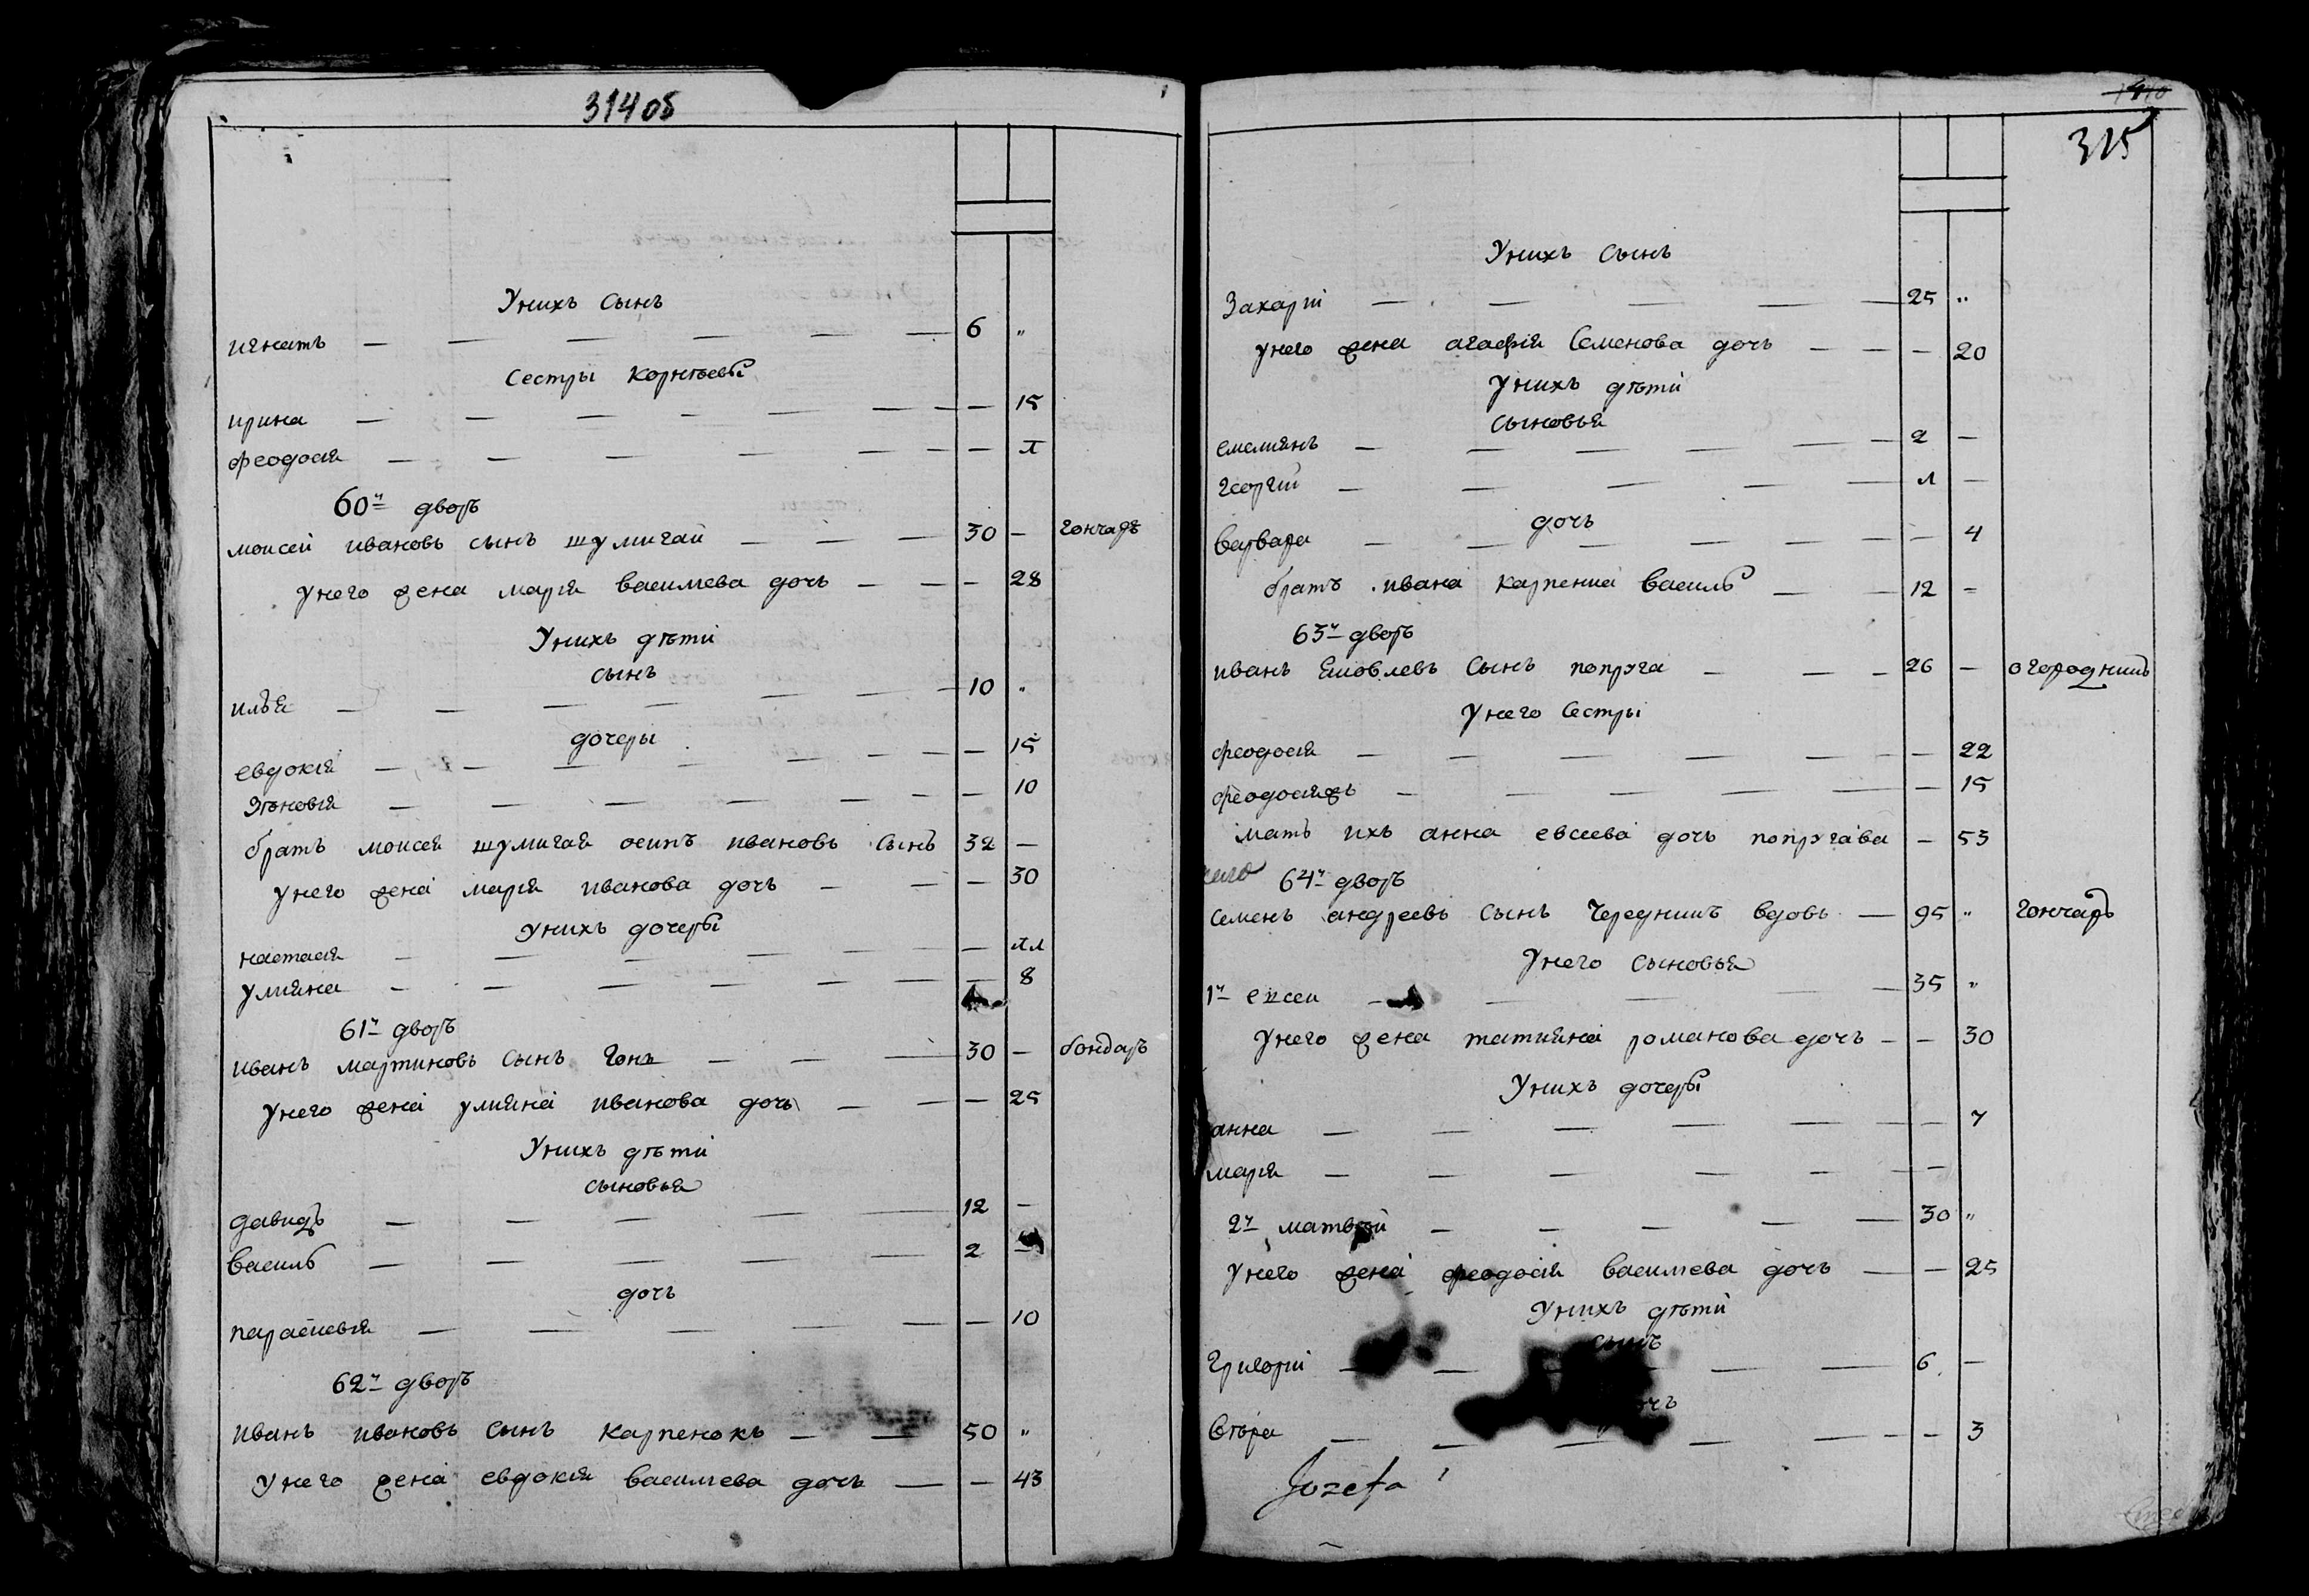 314 об
Унихъ Сынъ
игнатъ — — — — — — 6 „
Сестры Корнѣевы
ирина — — — — — — — — 15
феодосія — — — — — — — л
60й дворъ
моисей ивановъ сынъ шумигай — — — 30 — гончаръ
унего жена марія василиева дочь — — — 28
Унихъ дѣти
сынъ
илья — — — — — — 10 „
дочеры
евдокія — — — — — — — 15
Зѣновія — — — — — — — 10
братъ моисея шумигая осипъ ивановъ Сынъ 32 —
унего жена марія иванова дочь — — — 30
Унихъ дочеры
настасія — — — — — — лл
улияна — — — — — — — 8
61й дворъ
иванъ мартиновъ Сынъ Гонъ — — — 30 — бондаръ
Унего жена улияна иванова дочь — — — 25
Унихъ дѣти
сыновья
давидъ — — — — — 12 —
василь — — — — — 2 —
дочь
параскевія — — — — — — 10
62й дворъ
иванъ ивановъ Сынъ Карпенокъ — — 50 „
унего жена евдокія василиева дочь — — 43
315
Унихъ Сынъ
Захарій — — — — — 25 „
унего жена агафія Семенова дочь — — — 20
Унихъ дѣти
Сыновья
емелиянъ — — — — — — 2 —
георгій — — — — — л —
дочь
варвара — — — — — — — 4
братъ ивана Карпенка василь — — 12 =
63й дворъ
иванъ Яковлевъ Сынъ попруга — — — 26 — огородникъ
унего Сестры
феодосія — — — — — — — 22
феодосіяжъ — — — — — — 15
мать ихъ анна евсеева дочь попругава — 53
64й дворъ
Семенъ андреевъ Сынъ Чередникъ вдовъ — 95 „ Гончаръ
Унего Сыновья
1й евсеи — — — — — 35 „
Унего жена татияна романова дочь — — 30
Унихъ дочеры
анна — — — — — — — 7
марія — — — — — — —
2й матвѣй — — — — — 30 „
Унего жена феодосія василиева дочь — — 25
Унихъ дѣти
сынъ
Григорій — — — — — 6 —
Вѣра — — — — — — — 3
Jozefa